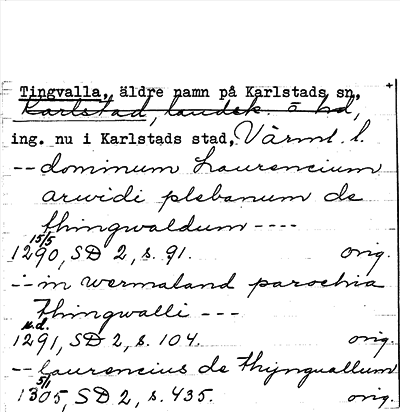 Tingvalla, äldre namn på Karlstads sn, +
Karlstad, landsk. o hd,
ing. nu i Karlstads stad, Värml. l.
-- dominum Laurencium
arwidi plebanum de
thingwaldum ----
15/5
1290, SD 2, s. 91. orig.
-- in wermaland parochia
thingwalli ---
u.d.
1291, SD 2, s. 104. orig.
-- laurencius de thijnguallum
5/1
1305, SD 2, s. 435. orig.